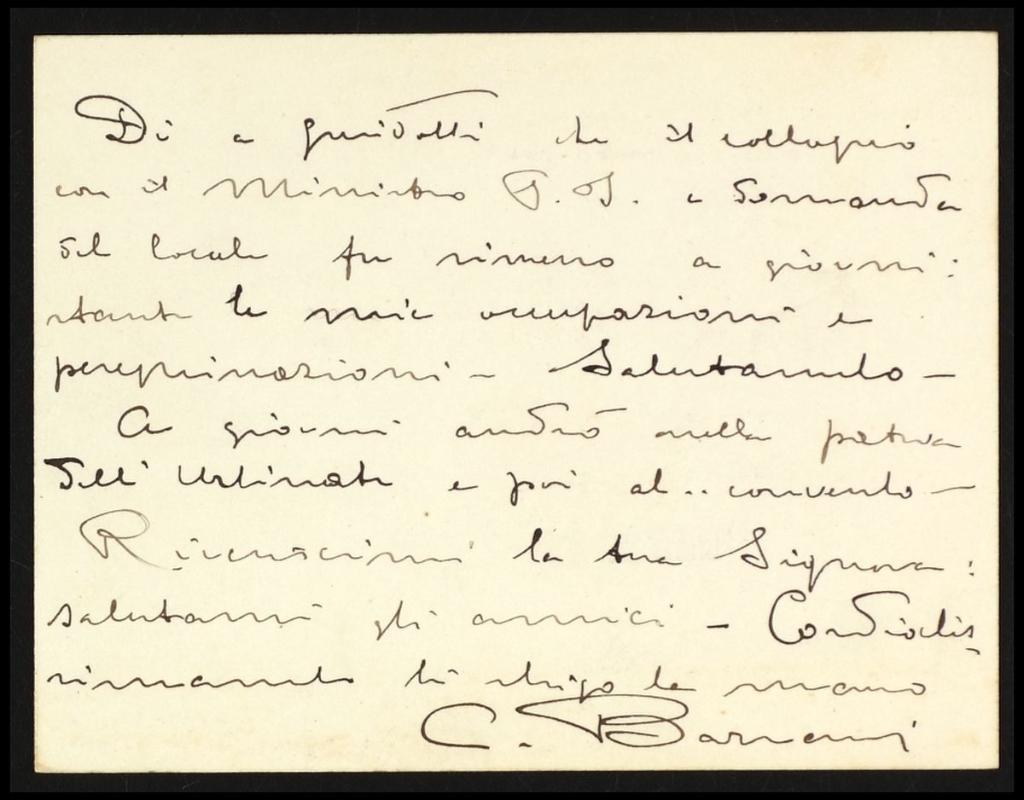 Di a Guidotti che il colloquio
con il Ministro P. I. e domanda
del locale fu rimesso a giorni:
stante le mie occupazioni e
peregrinazioni - Salutamelo -
A giorni andrò nella patria
dell'Urbinate e poi al .. convento -
Riveriscimi la tua Signora:
salutami gli amici - Cordialis-
simamente ti stringo la mano
C.